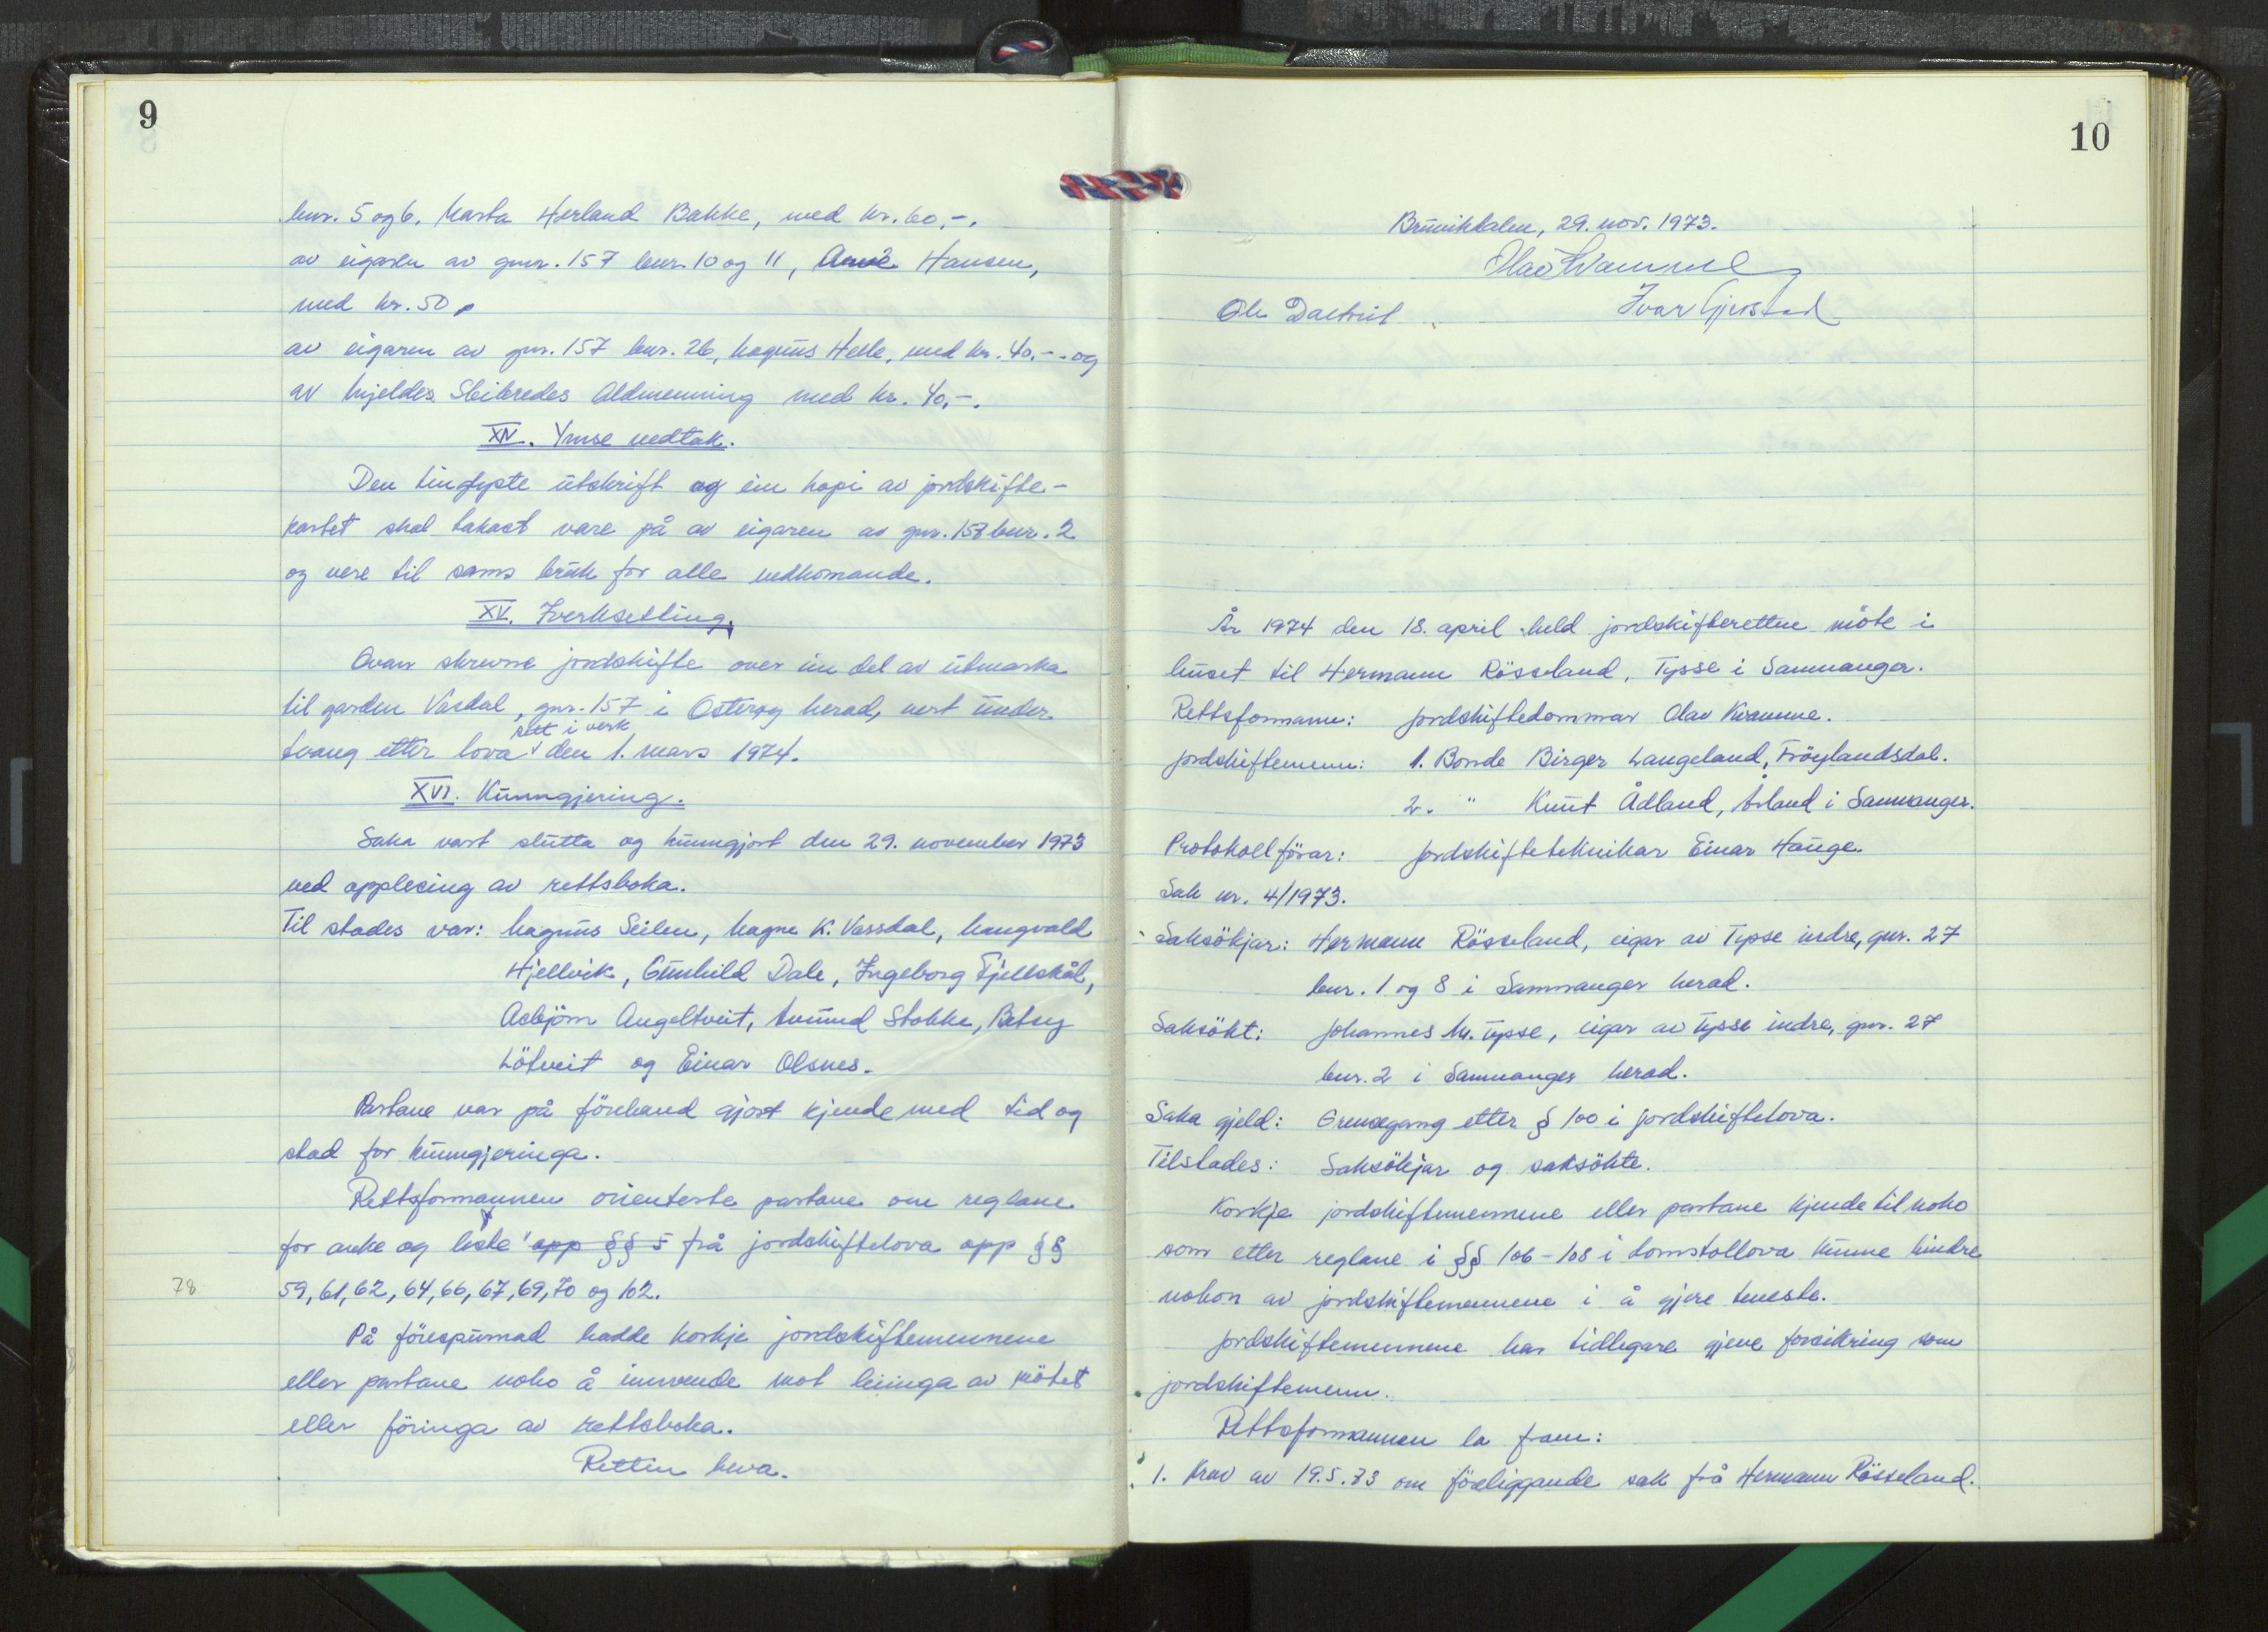 9
bnr. 5 og 6, Marta Herland Bakke, med kr. 60,-.
av eigaren av gnr. 157 bnr. 10 og 11, Arne Hansen,
med kr. 50,-
av eigaren av gnr. 157 bnr. 26, Magnus Helle, med kr. 40,-. og
av Mjeldes Skibredes Aldmenning med kr. 40,-.
XIV. Ymse vedtak.
Den tinglyste utskrift og ein kopi av jordskifte-
kartet skal takast vare på av eigaren av gnr. 157 bnr. 2
og vere til sams bruk for alle vedkomande.
XV. Iverksetting.
Ovan skrevne jordskifte over ein del av utmarka
til garden Vasdal, gnr. 157 i Osterøy herad, vert under
sett i verk
tvang etter lova den 1. mars 1974.
XVI. Kunngjering.
Saka vart slutta og kunngjort den 29. november 1973
ved opplesing av rettsboka.
Til stades var: Magnus Seilen, Magne K. Vassdal, Mangvald
Hjellvik, Gunhild Dale, Ingeborg Fjellskål,
Asbjörn Angeltveit, Amund Stokke, Betsy
Lötveit og Einar Olsnes.
Partane var på förehand gjort kjende med tid og
stad for kunngjeringa.
Rettsformannen orienterte partane om reglane
for anke og leste opp §§ 5 frå jordskiftelova opp §§
78
59, 61, 62, 64, 66, 67, 69, 70 og 102.
På förespurnad hadde korkje jordskiftemennene
eller partane noko å innvende mot leiinga av mötet
eller föringa av rettsboka.
Retten heva.
10
Bruvikdalen, 29. nov. 1973.
Olav Kvamme
Ivar Gjerstad
Ole
År 1974 den 18. april held jordskifteretten möte i
huset til Hermann Rösseland, Tysse i Samnanger.
Rettsformann: Jordskiftedommar Olav Kvamme.
Jordskiftemenn: 1. Bonde Birger Langeland, Fröylandsdal.
2. " Knut Ådland, Årland i Samnanger.
Protokollförar: Jordskifteteknikar Einar Hauge.
Sak nr. 4/1973.
Saksökjar: Hermann Rösseland, eigar av Tysse indre, gnr. 27
bnr. 1 og 8 i Samnanger herad.
Saksökt: Johannes M. Tysse, eigar av Tysse indre, gnr. 27
bnr. 2 i Samnanger herad.
Saka gjeld: Grensegang etter § 100 i jordskiftelova.
Tilstades: Saksökjar og saksökte.
Korkje jordskiftemennene eller partane kjende til noko
som etter reglane i §§ 106-108 i domstollova kunne hindre
nokon av jordskiftemennene i å gjere teneste.
Jordskiftemennene har tidlegare gjeve forsikring som
jordskiftemenn.
Rettsformannen la fram:
1. Krav av 19.5.73 om föreliggande sak frå Hermann Rösseland.